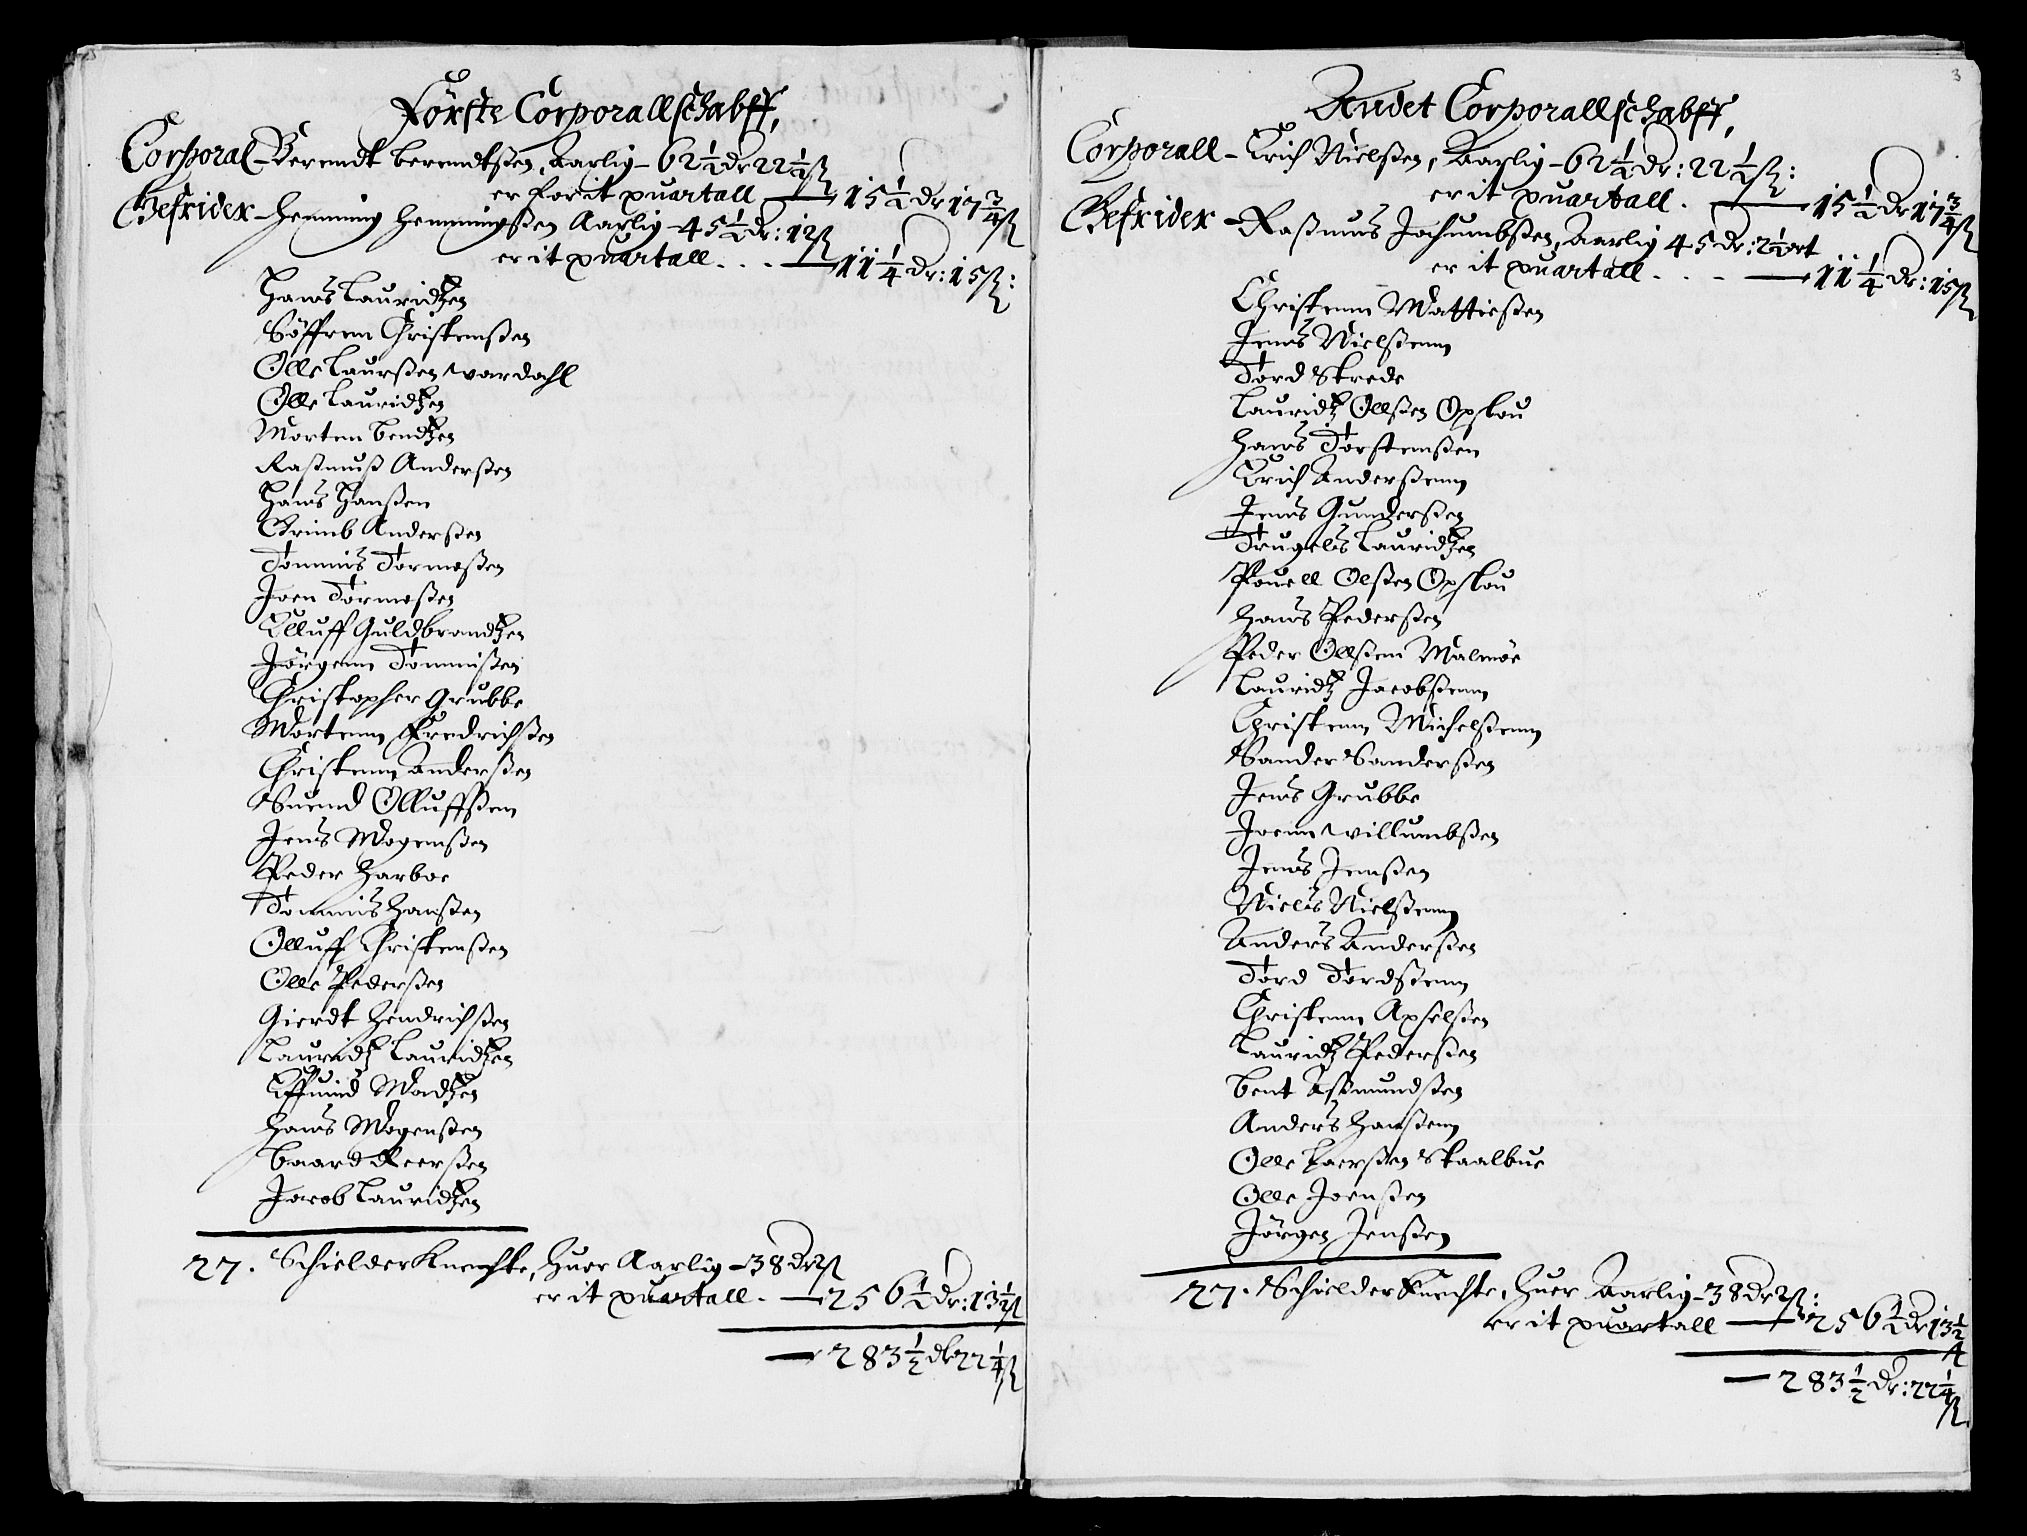 Förste Corporallschabff,
Corporal – Berendt berendtßen, Aarlig – 62½ dr 22½ ß
er for it quartall — 15½ dr 17¾ ß
Gefrider – Henning Hemmingßen Aarlig – 45½ dr: 12 ß
er it quartall . . . — 11¼ dr: 15 ß:
Hans Lauridtzen
Söffren Christenßen
Olle Laurßen wardahl
Olle Lauridtzen
Morten bendtzen
Raßmuß Anderßen
Hans Hanßen
Grimb Anderßen
Tommis Tormoßen
Joen Tormoßen
Elluff Guldbrandtzen
Jörgenn Tommißen
Christopher Grubbe
Mortenn Fredrichßen
Christenn Anderßen
Suend Olluffßen
Jens Mogenßen
Peder Harboe
Tommis Hanßen
Olluff Christenßen
Olle Pederßen
Gierdt Hendrichßen
Lauridtz Lauridtzen
Effuind Madtzen
Hans Mogenßen
baard Reerßen
Jacob Lauridtzen
27. Schielder Knechte, Huer Aarlig – 38 dr 2 ß
er it quartall. — 256½ dr: 13½ ß
— 283½ dr 22¼ ß
3
Andet Corporallschabff,
Corporall – Erich Nielßen, Aarlig – 62½ dr: 22½ ß:
er it quartall. — 15½ dr 17¾ ß
Gefrider – Raßmus Jochumbßen, Aarlig 45 dr: 2½ ort
er it quartall . . . — 11¼ dr: 15 ß
Christenn Mattießen
Jens Nielßenn
Tord Skrede
Lauridtz Ollßen Opslou
Hans Torstenßen
Erich Anderßenn
Jens Gunderßen
Trugels Lauridtzen
Pouell Olßen Opslou
Hans Pederßen
Peder Ollßenn Malmöe
Lauridtz Jacobßenn
Christenn Michelßenn
Sander Sanderßen
Jens Grubbe
Joenn willumbßen
Jens Jenßen
Niels Nielßenn
Anders Anderßen
Tord Tordßenn
Christenn Axelßen
Lauridtz Pederßen
bent Aßmundßen
Anders Hanßenn
Olle Laerßen Skaalbue
Olle Joenßen
Jörgen Jenßen
27. Schielder Knechte, Huer Aarlig – 38 dr 2 ß:
er it quartall — 256½ dr 13½ ß
— 283½ dr: 22¼ ß